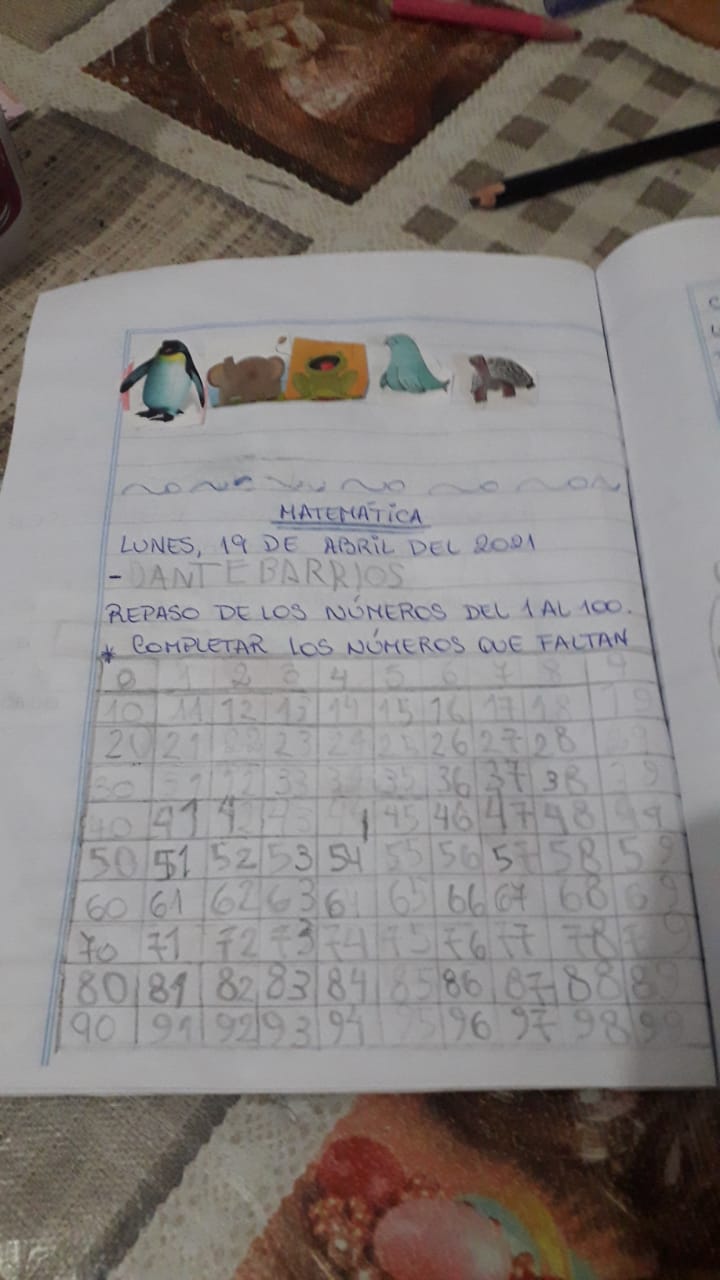 MATEMÁTICA
LUNES, 19 DE ABRIL DEL 2021
- DANTE BARRIOS
REPASO DE LOS NÚMEROS DEL 1 AL 100.
* COMPLETAR LOS NÚMEROS QUE FALTAN
0 1 2 3 4 5 6 7 8 9
10 11 12 13 14 15 16 17 18 19
20 21 22 23 24 25 26 27 28 29
30 31 32 33 34 35 36 37 38 39
40 41 42 43 45 46 47 48 49
50 51 52 53 54 55 56 57 58 59
60 61 62 63 65 66 67 68 69
70 71 72 73 74 75 76 77 78 79
80 81 82 83 84 85 86 87 88 89
90 91 92 93 94 95 96 97 98 99